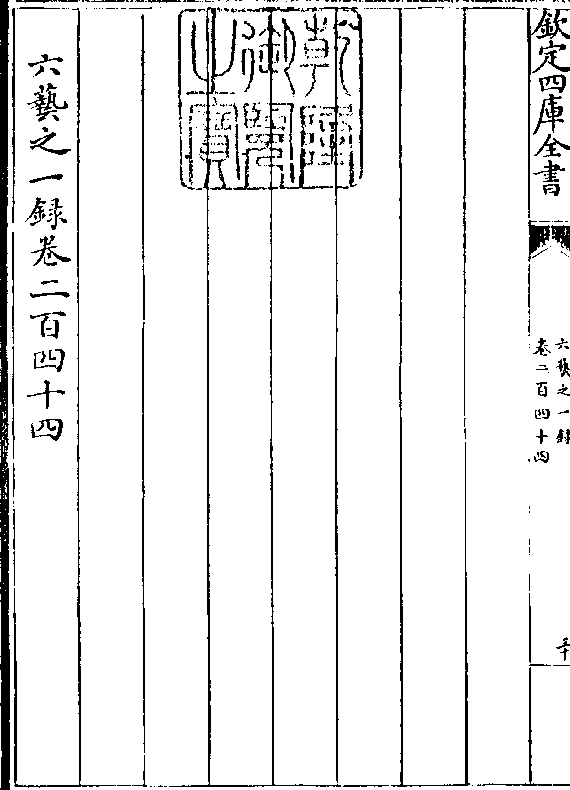 欽定四庫全書
六藝之一録
卷二百四十四
三十
乾隆御覽之寶
六藝之一録卷二百四十四